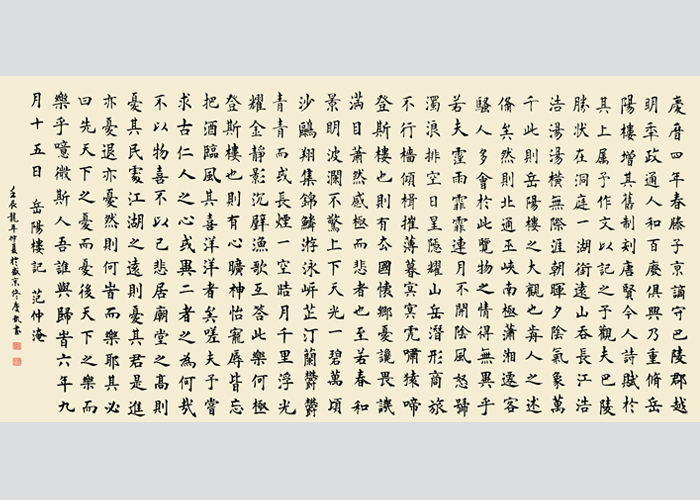 慶曆四年春滕子京謫守巴陵郡越
明年政通人和百廢俱興乃重脩岳
陽樓增其舊制刻唐賢今人詩賦於
其上屬予作文以記之予觀夫巴陵
勝狀在洞庭一湖銜遠山吞長江浩
浩湯湯橫無際涯朝暉夕陰氣象萬
千此則岳陽樓之大觀也前人之述
備矣然則北通巫峽南極瀟湘遷客
騷人多會於此覽物之情得無異乎
若夫霪雨霏霏連月不開陰風怒號
濁浪排空日星隱耀山岳潛形商旅
不行檣傾楫摧薄暮冥冥虎嘯猿啼
登斯樓也則有去國懷鄉憂讒畏譏
滿目蕭然感極而悲者也至若春和
景明波瀾不驚上下天光一碧萬頃
沙鷗翔集錦鱗游泳岸芷汀蘭鬱鬱
青青而或長煙一空皓月千里浮光
耀金靜影沉璧漁歌互答此樂何極
登斯樓也則有心曠神怡寵辱皆忘
把酒臨風其喜洋洋者矣嗟夫予嘗
求古仁人之心或異二者之為何哉
不以物喜不以己悲居廟堂之高則
憂其民處江湖之遠則憂其君是進
亦憂退亦憂然則何時而樂耶其必
曰先天下之憂而憂後天下之樂而
樂乎噫微斯人吾誰與歸時六年九
月十五日 岳陽樓記 范仲淹
壬辰龍年仲夏於盛京